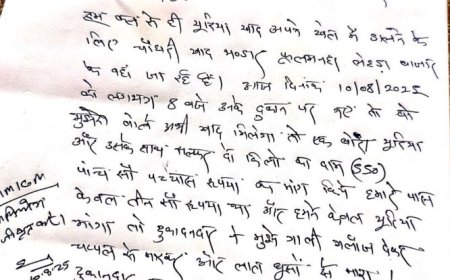 हम कल से ही यूरिया खाद अपने खेत में डालने के
लिए चौधरी खाद भण्डार बाजार
के यहाँ जा रहे हैं। आज दिनांक 10/08/2025
को लगभग 8 बजे उनके दुकान पर गए तो वो
बोले अभी खाद मिलेगा तो एक बोरा यूरिया
और उसके साथ सल्फर दो किलो का दाम (550)
पान्च सौ पच्चास रूपया का मांग किये हमारे पास
केवल तीन सौ रूपया था और हमने केवल यूरिया
मांगा तो दुकानदार ने मुझे गाली गलौज देकर
चप्पल से मारकर और लात घुसों से मारा।
दुकानदार